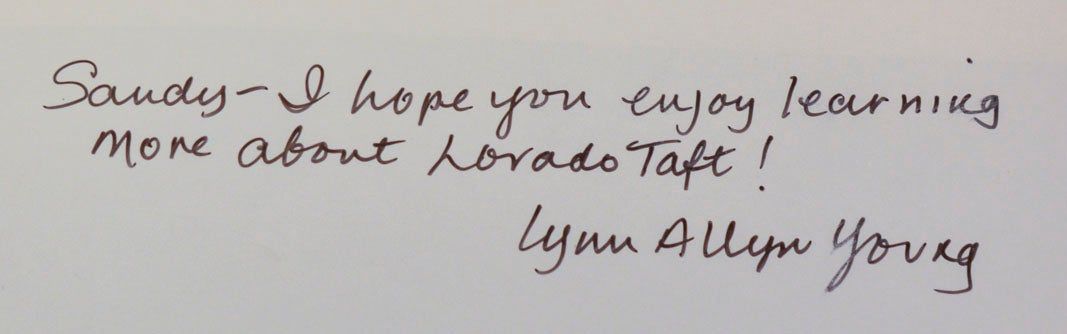 Sandy - I hope you enjoy learning
more about Lorado Taft!
Lynn Allyn Young